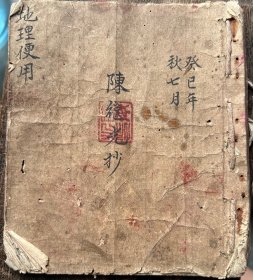 癸巳年
秋七月
陳繼光抄
地理便用